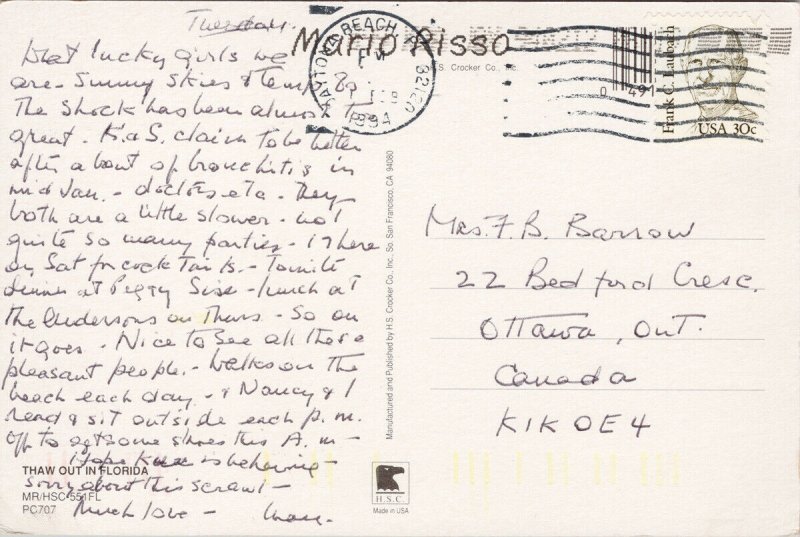 Tuesday.
What lucky girls we
are - Sunny skies & temp 80
The shock has been almost too
great. K & S. claim to be better
after a bout of bronchitis in
mid Jan. - doctors etc. They
both are a little slower - not
quite so many parties - 17 here
on Sat for cocktails. - Tonite
dinner at Peggy Size - lunch at
the Andersons on Thurs - So on
it goes. Nice to see all these
pleasant people. - Walks on the
beach each day. - & Nancy & I
read & sit outside each p.m.
Off to get some shoes this A.m -
Hope is behaving -
Sorry about this scrawl -
Much love -
THAW OUT IN FLORIDA
MR/HSC-551FL
PC707
Mario Risso
H.S. Crocker Co., Inc.
DAYTONA BEACH, FL
PM
1 FEB
1994
0 491
Frank C. Laubach
USA 30c
Manufactured and Published by H.S. Crocker Co., Inc. So. San Francisco, CA 94080
Mrs. F. B. Barrow
22 Bedford Cresc.
Ottawa, Ont.
Canada
K1K 0E4
H.S.C.
Made in USA